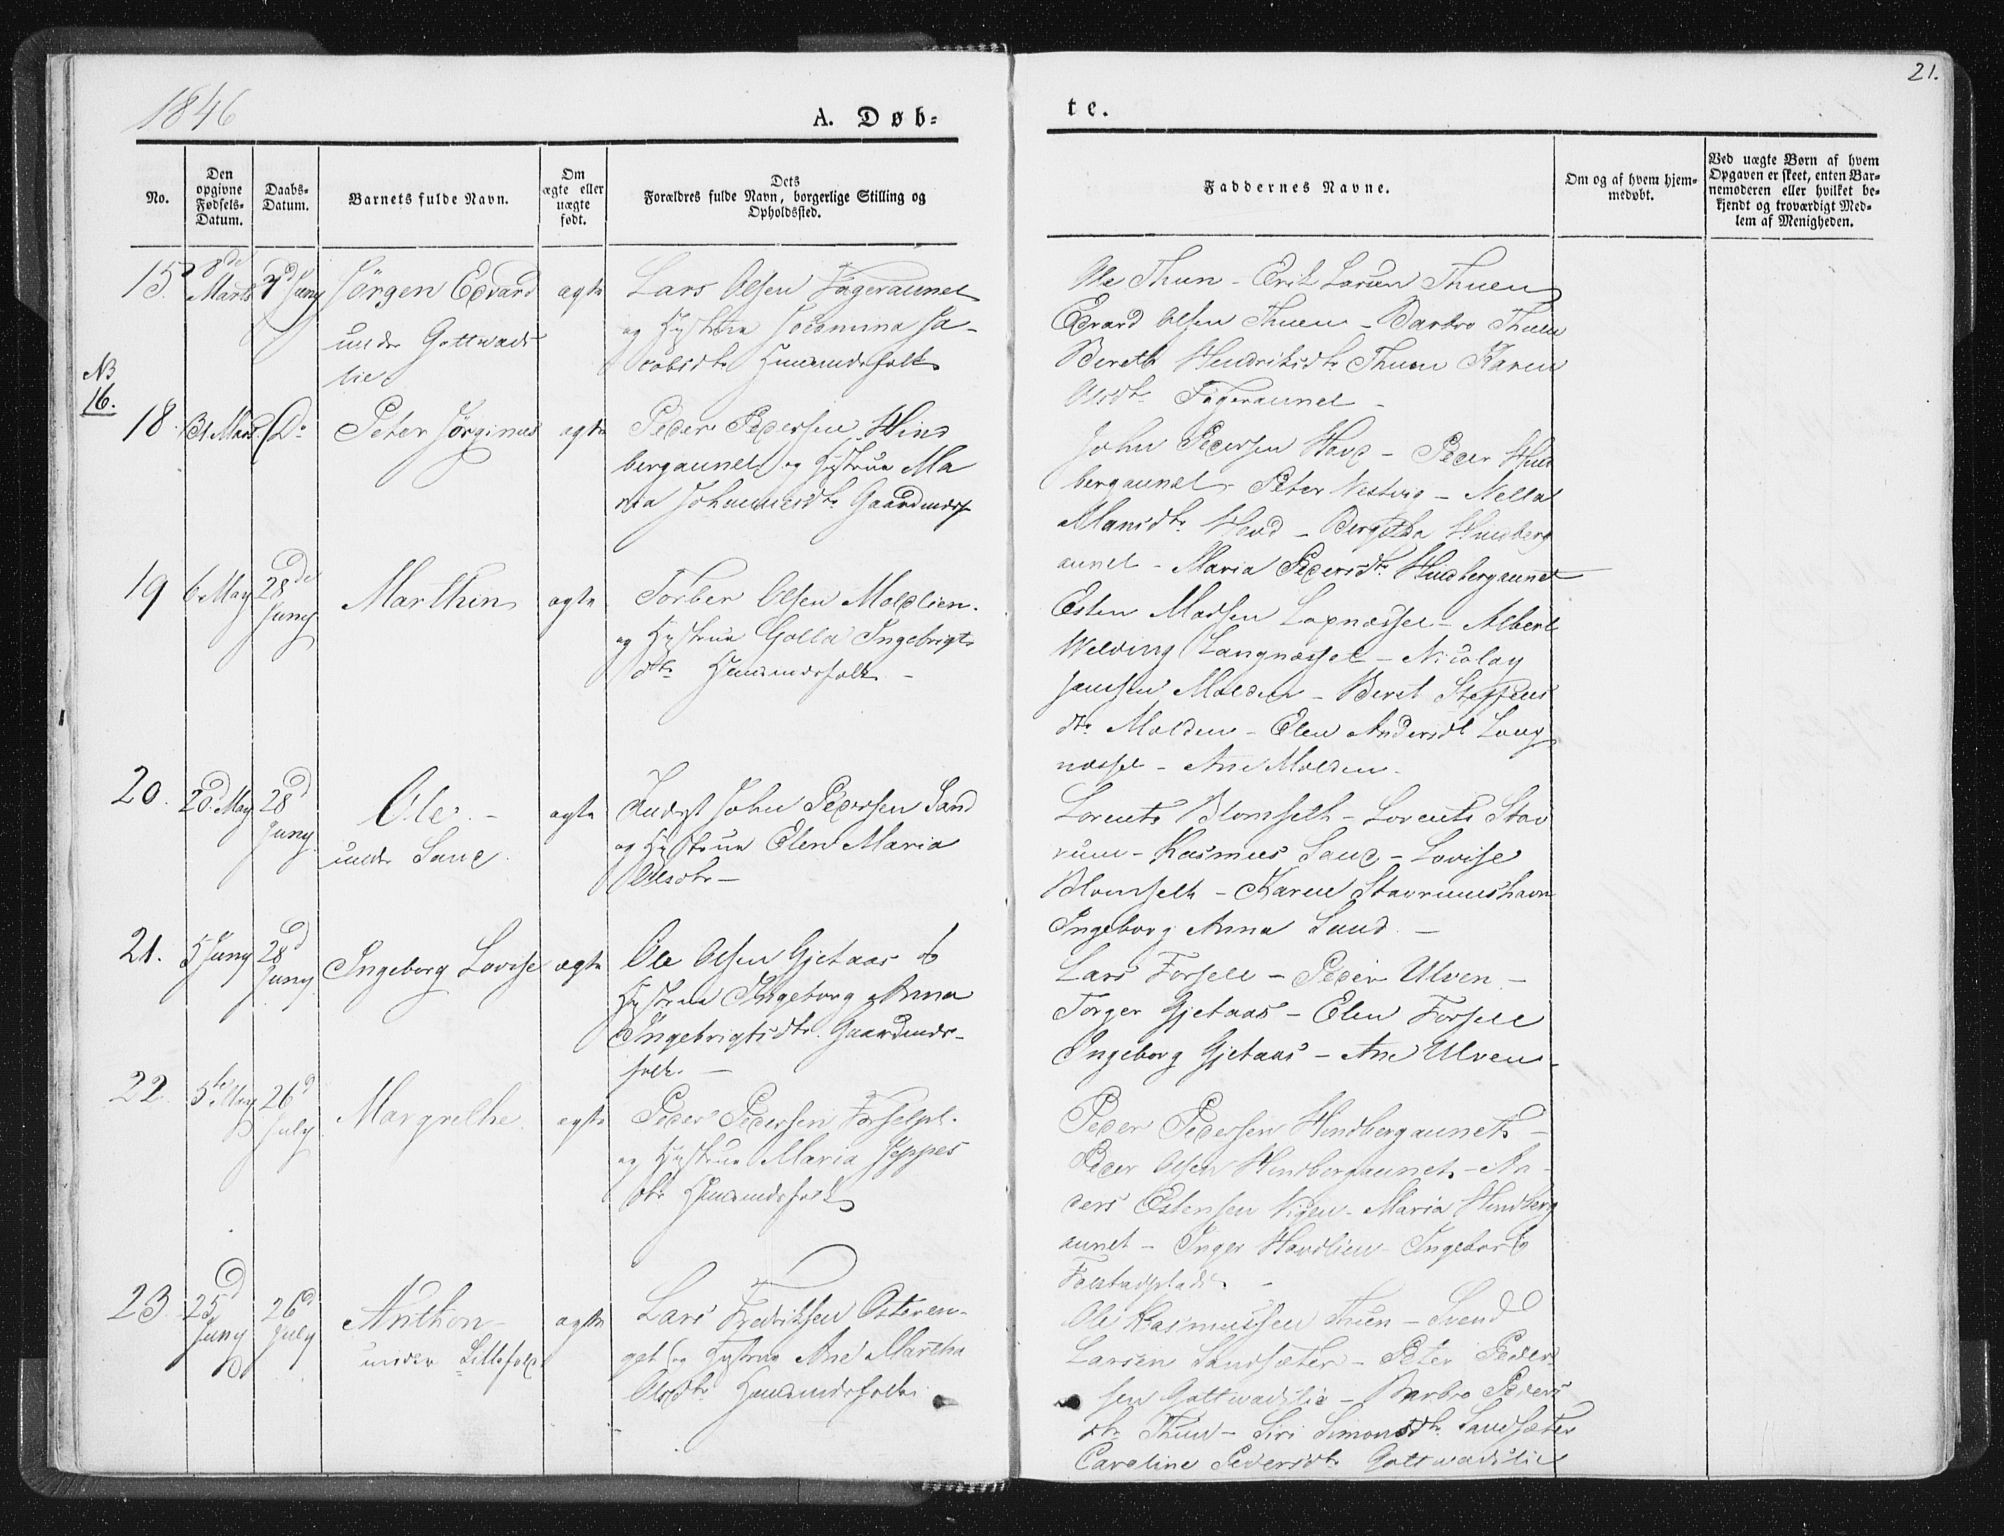 1846
A. Døb-
te.
21.
No.
Den
opgivne
Fødsels-
Datum.
Daabs-
Datum.
Barnets fulde Navn.
Om
ægte eller
uægte
født.
Dets
Forældres fulde Navn, borgerlige Stilling og
Opholdssted.
Faddernes Navne.
Om og af hvem hjem-
medøbt.
Ved uægte Børn af hvem
Opgaven er skeet, enten Bar-
nemoderen eller hvilket be-
kjendt og troværdigt Med-
lem af Menigheden.
15
8de
Marts
7de Juny
Jørgen Edvard
under Gottvads
lie
ægte
Lars Olsen Fageraunet
og Hustru Jocomina Ja-
cobsdtr Huusmandsfolk
Ole Thun - Erik Larsen Thuen
Edvard Olsen Thuen - Barbro Thuen
Bereth Hendriksdtr Thuen Karen
Olsdtr Fageraunet -
NB
16.
18.
31 Marts
Do
Peter Jørginus
ægte
Peder Pedersen Hind
bergaunet og Hustrue Ma
ria Johannesdtr. Gaardmdsf
John Pedersen Hovd - Peder Hind
bergaunet - Peter Vestvig - Nella
Mansdtr. Hovd - Bergitha Hindberg
aunet - Maria Pedersdtr. Hindbergaunet
19
6 May
28de
Juny
Marthin
ægte
Torber Olsen Moldlien.
og Hustrue Golla Ingebrigts
dtr. Huusmandsfolk -
Esten Madsen Langnæsset - Albert
Welding Langnæsset - Nicolay
Jensen Molden - Beret Steffens
dtr. Molden - Elen Andersdt Lang
næsset - Ane Molden -
20.
20d May
28d
Juny
Ole -
under Sand.
ægte
Inderst John Pedersen Sand
og Hustrue Elen Maria
Olsdtr -
Lorents Blomseth - Lorents Stav
rum - Rasmus Sand - Lovise
Blomseth - Karen Stavrumshavn
Ingeborg Anna Sand. -
21.
5 Juny
28d
Juny
Ingeborg Lovise
ægte
Ole Olsen Gjetaas &
Hustrue Ingeborg Anna
Ingebrigtsdtr. Gaardmds-
folk. -
Lars Forsell - Peder Ulven. -
Torger Gjetaas - Elen Forsell
Ingeborg Gjetaas - Ane Ulven.
22.
5te May
26d
July
Margrethe.
ægte
Peder Pedersen Forselpl.
og Hustrue Maria Jeppes
dtr Huusmandsfolk
Peder Pedersen Hindbergaunet -
Peder Olsen Hindbergaunet - An-
ders Estensen Vigen - Maria Hindberg
aunet - Inger Havdlien - Ingeborg
-
23.
25d
Juny
26d
July
Anthon -
under
ægte
Lars Fredriksen Osteren-
get og Hustrue Ane Martha
Olsdtr. Huusmandsfolk.
Ole Rasmussen Thun - Svend
Larsen Sandsæter - Peter Peder
sen Gottvadslie - Barbro Peders
dtr. Thun - Siri Simonsdtr. Sandsæter
Caroline Pedersdtr. Gottvadslie